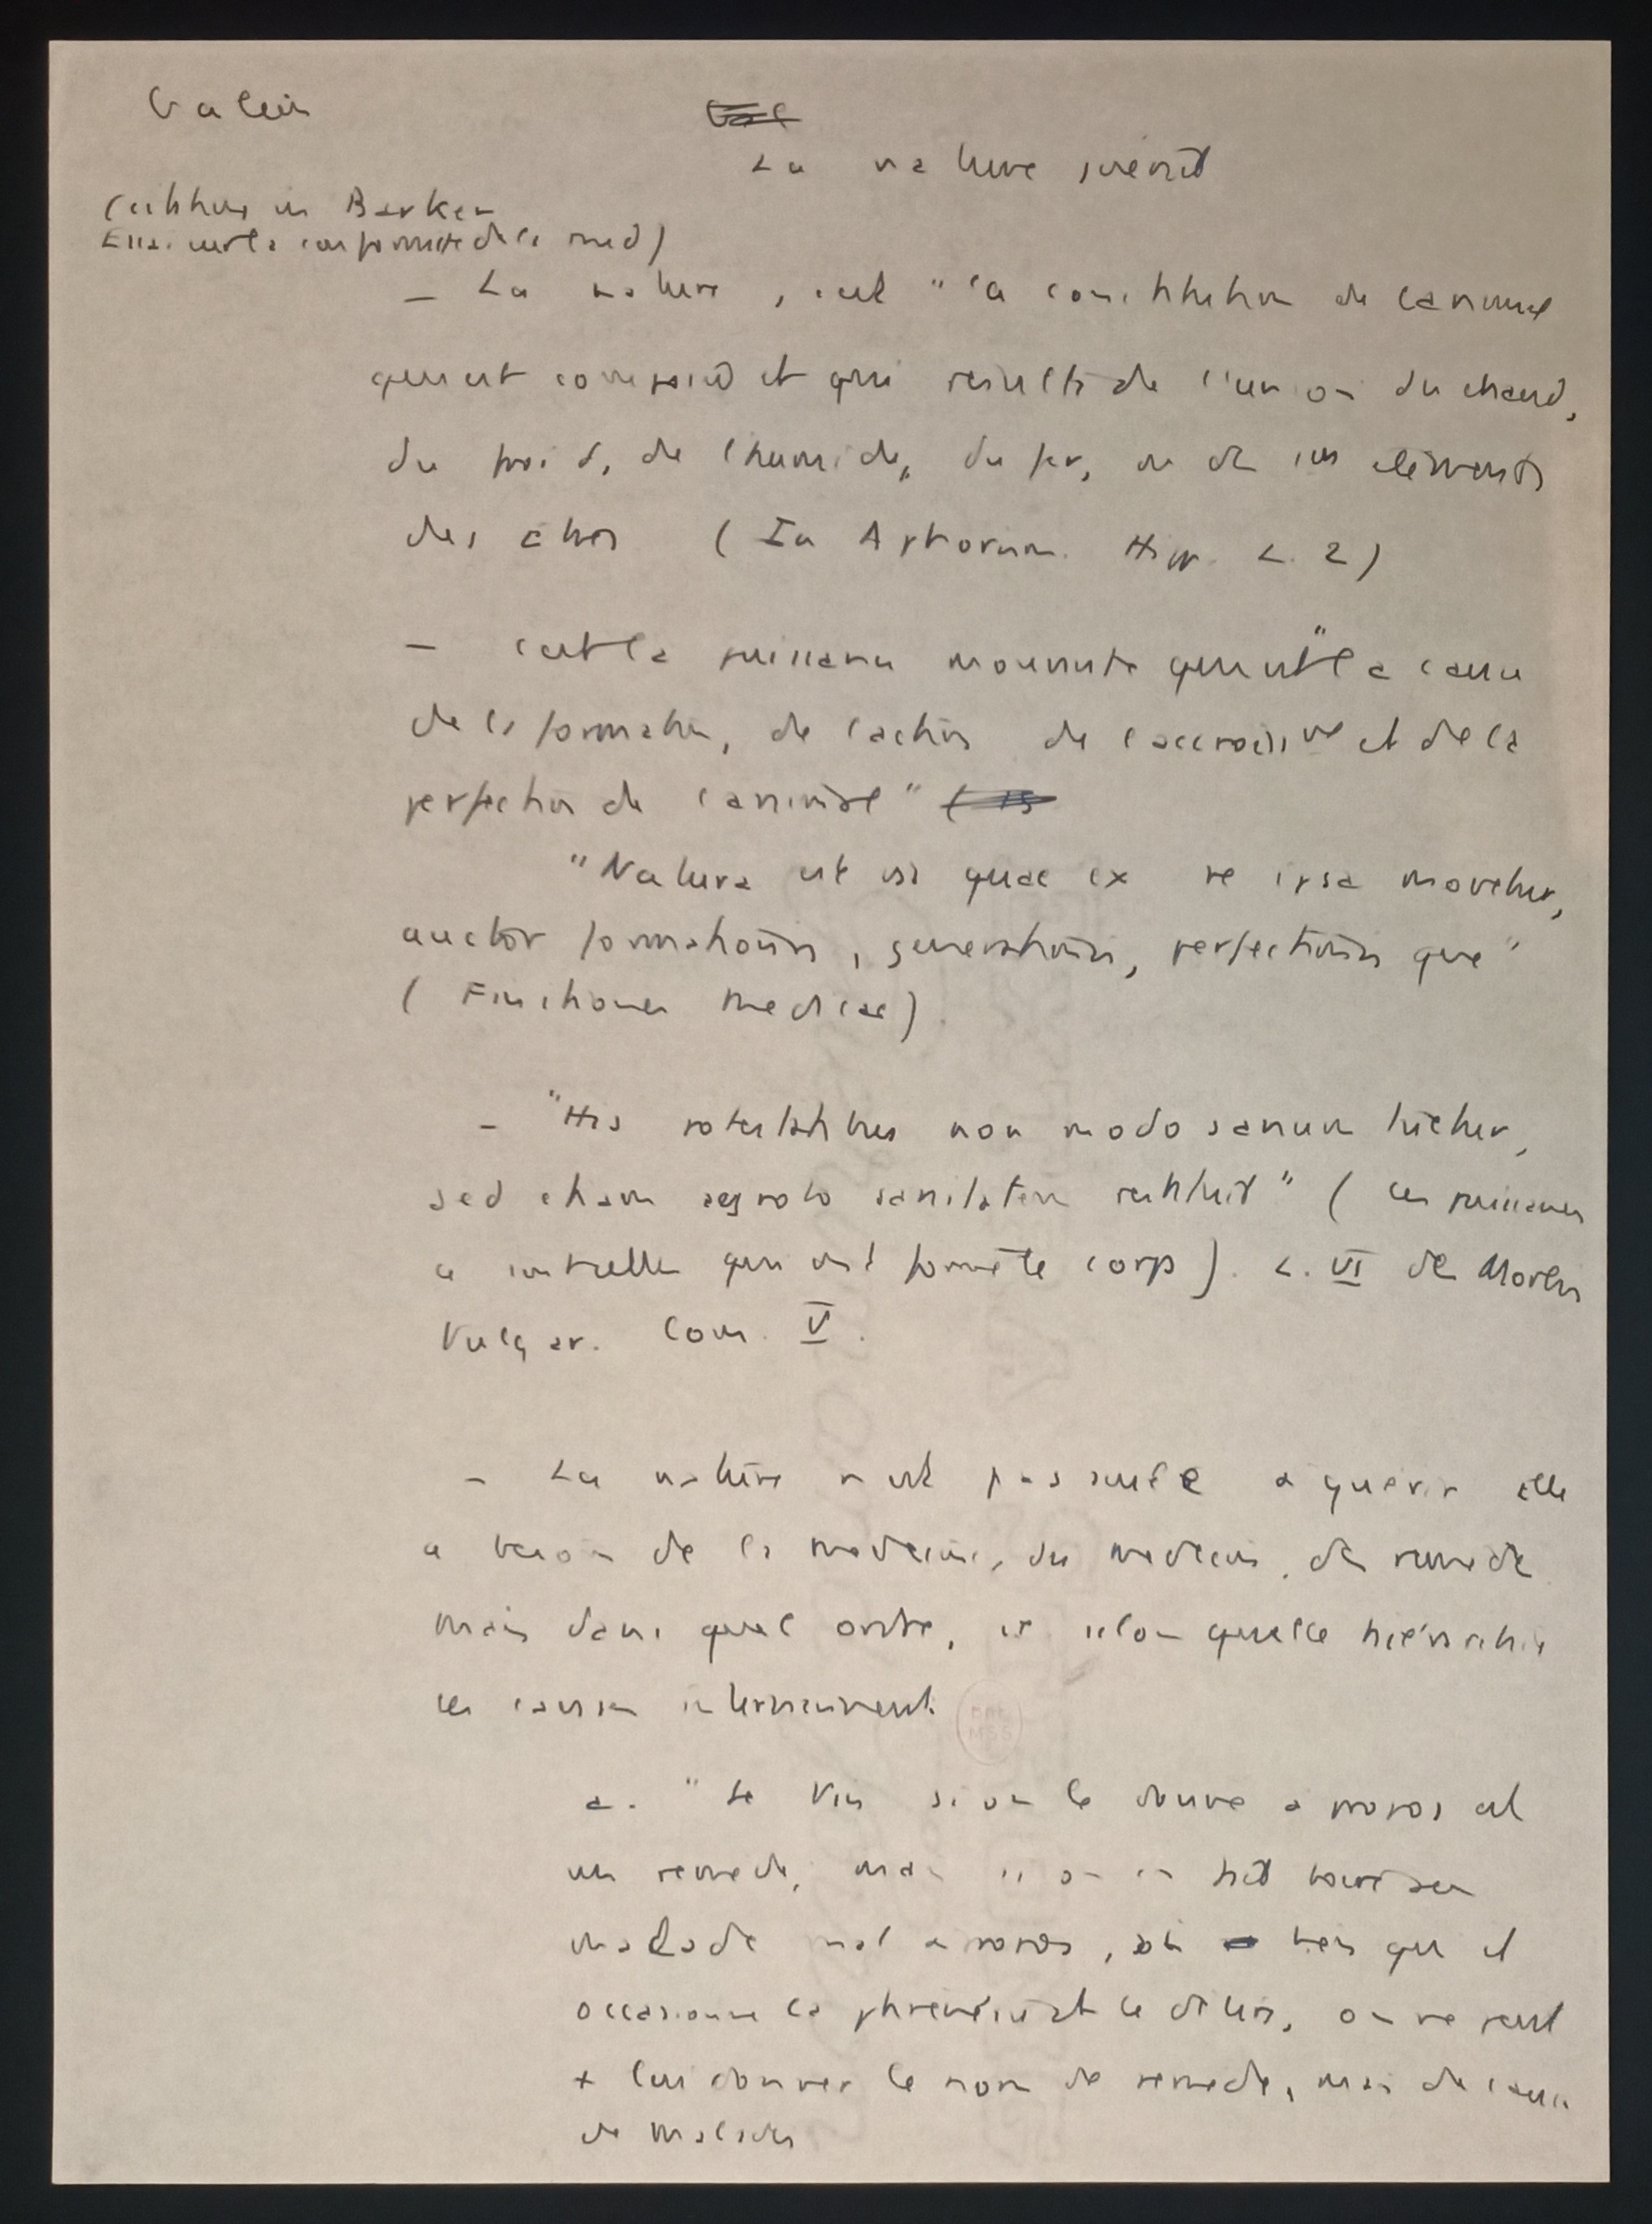 Galien
~~Gal~~
La nature guérit
(citations in Barker
Essai sur la conformité de la med)
– La nature, c'est "la constitution de l'animal
qui est composé et qui résulte de l'union du chaud,
du froid, de l'humide, du sec, ou de ces éléments
des choses (In Aphorism. Hipp. L. 2)
– c'est la puissance mouvante qui est "la cause
de la formation, de l'action de l'accroissmt et de la
perfection de l'animal"
"Natura est vis quae ex se ipsa movetur,
auctor formationis, generationis, perfectionis que"
(Finitiones Medicae)
– "His potestatibus non modo sanum tuetur,
sed etiam aegroto sanitatem restituit" (les puissances
a contrelles qui ont formé le corps). L. VI de Morbis
Vulgar. Com. V.
– La nature n'est pas seule à guérir elle
a besoin de la médecine, du médecin, du remède
mais dans quel ordre, et selon quelle hiérarchie
ces causes interviennent.
a. "Le Vin si on le donne à propos est
un remède, mais si on en fait boire au
malade mal à propos, ou bien qu'il
occasionne la phrénésie et le délire, on ne peut
+ lui donner le nom de remède, mais de cause
de maladies
BNF
MSS